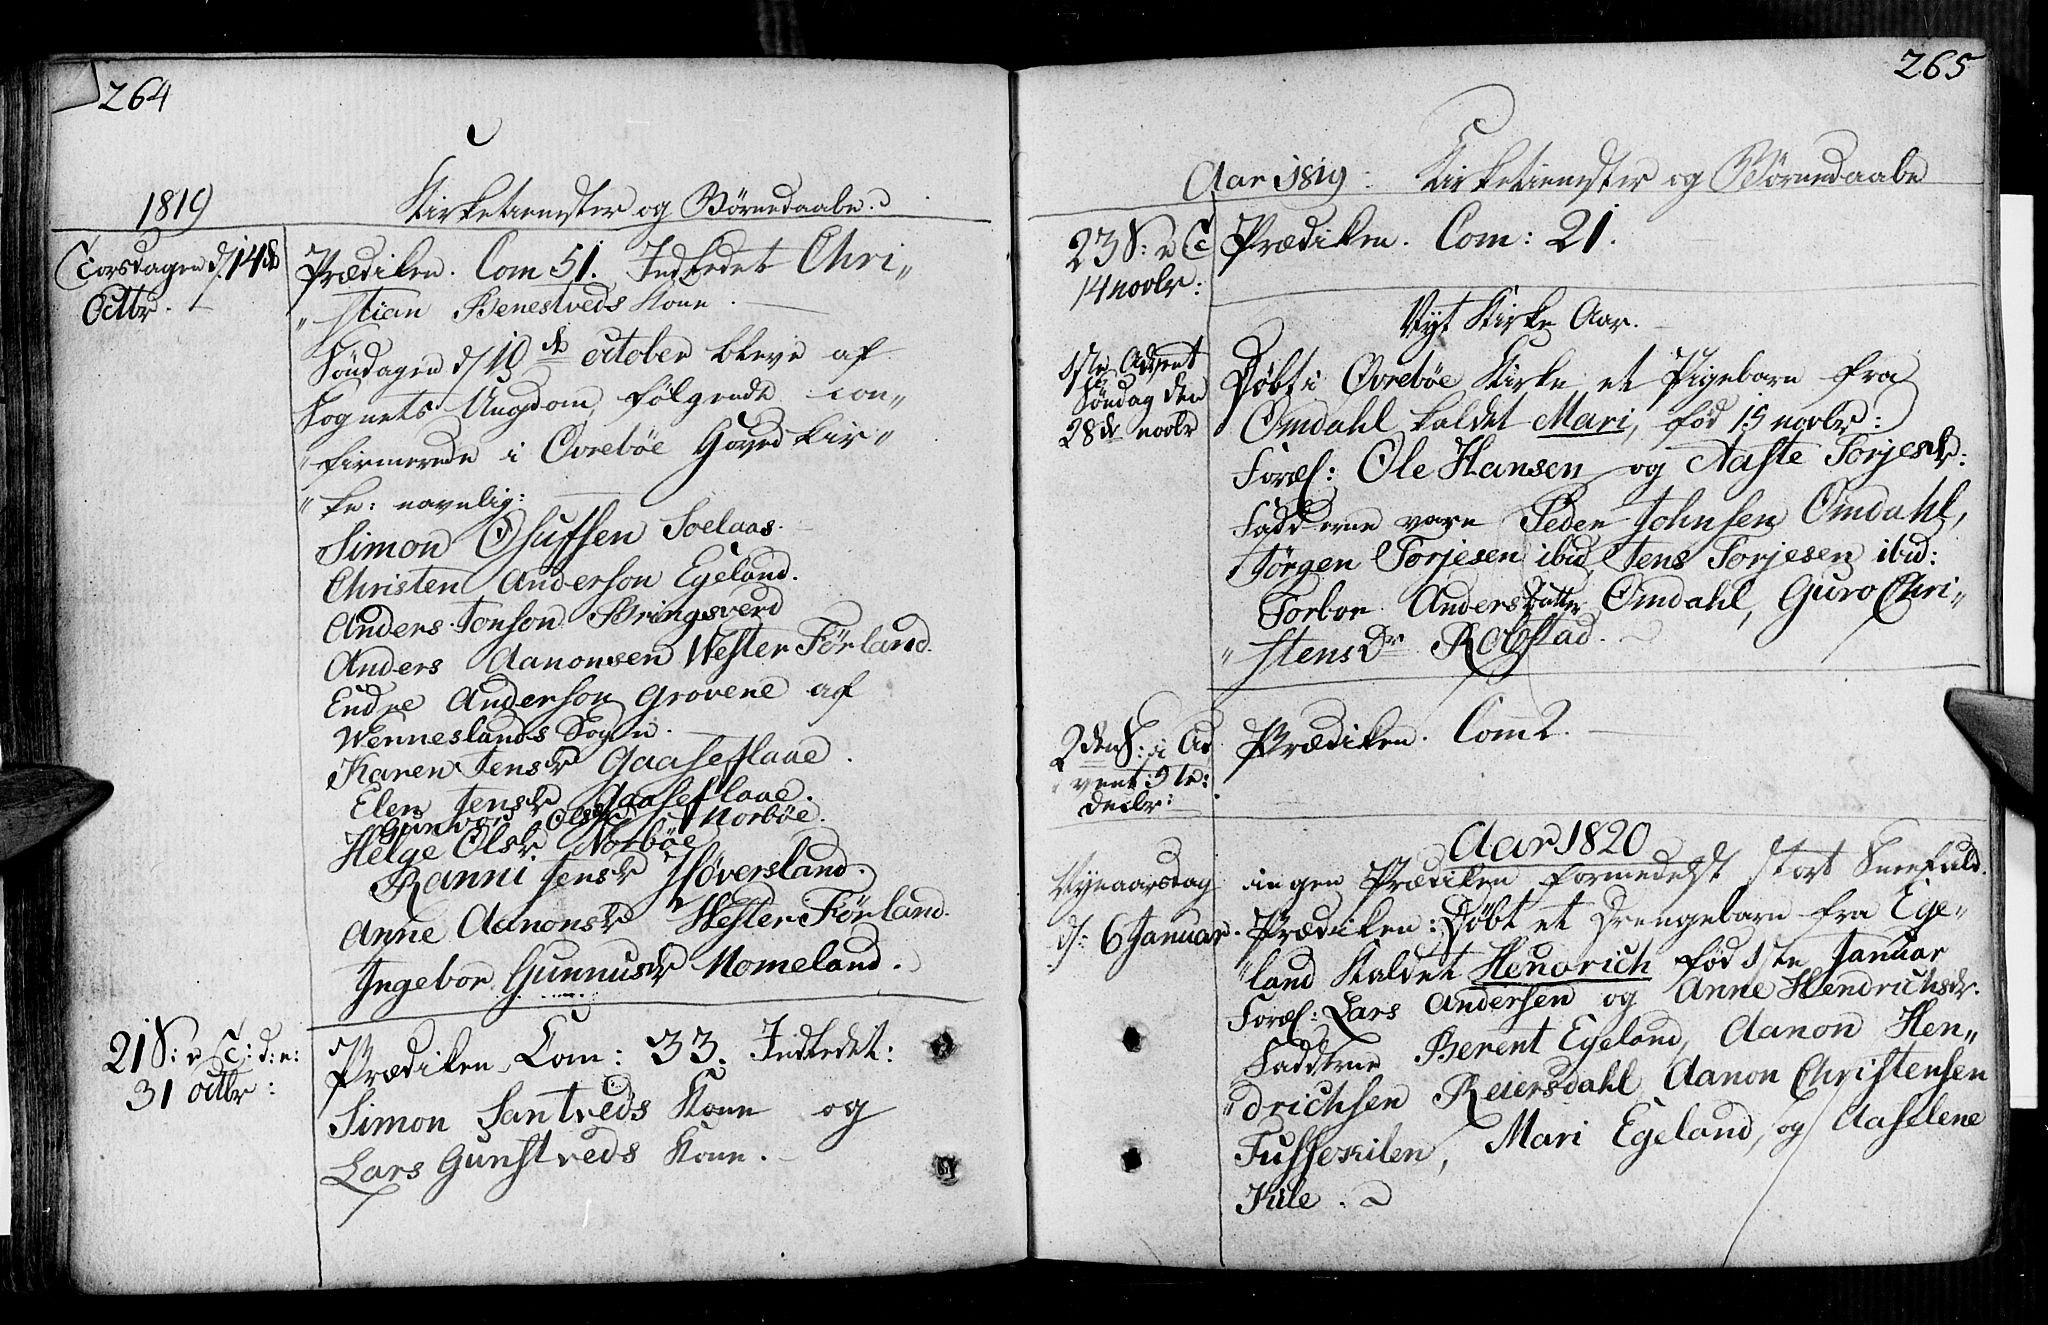 264
1819
Kirketienester og Börnedaabe.
Torsdagen d. 14de
Octbr.
Prædiken. Com 51. Indledet Chri„
„stian Benestveds Kone.
Söndagen d. 10de October bleve af
Sognets Ungdom, følgende con„
„firmerede i Øvrebøe Hoved Kir„
„ke: navnlig:
Simon Osufsen Soelaas.
Christen Anderson Egeland.
Anders Jonson Bringsverd
Anders Aanonsen Wester Förland.
Endre Anderson Grovene af
Wenneslands Sogn.
Karen Jensdr Gaaseflaae.
Elen Jensdr Gaaseflaae.
Gunvor Olsdr Norbøe.
Helge Olsdr Norbøe
Ranni Jensdr Høversland.
Anne Aanonsdr Wester Förland.
Ingebor Gunnusdr Momeland.
21 S: e T: d: e:
31 Octbr:
Prædiken. Com: 33. Indledet:
Simon Santveds Kone og
Lars Gunstveds Kone.
265
Aar 1819. Kirketienester og Börnedaabe
23 S: e T
14 Novbr:
Prædiken. Com: 21.
Nyt Kirke Aar.
1ste Advent
Söndag den
28de Novbr
Døbt i Øvrebøe Kirke et Pigebarn fra
Omdahl kaldet Mari, föd 15 Novbr:
Foræl: Ole Hansen og Aaste Torjesdr:
Fadderne vare Peder Johnsen Omdahl,
Jørgen Torjesen ibid, Jens Torjesen ibid:
Torbor Anders Datter Omdahl, Guro Chri„
„stensDr Robstad.
2den S: i Ad„
„vent: 5te:
Decbr:
Prædiken. Com 2.
Aar 1820
Nytaarsdag
ingen Prædiken formedelst stort Sneefald.
d: 6 Januar.
Prædiken: Døbt et Drengebarn fra Ege„
„land Kaldet Hendrich föd 1ste Januar
Foræl: Lars Andersen og Anne Hendrichsdr.
Fadderne Berent Egeland, Aanon Hen„
„drichsen Reiersdahl Aanon Christensen
Fusseskilen, Mari Egeland, og Aaselene
Kule.